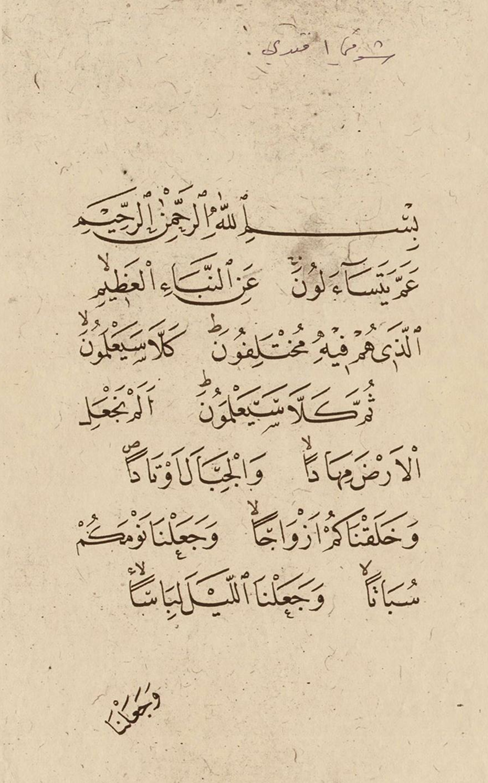 شوقي افندي
بِسْمِ اللّٰهِ الرَّحْمٰنِ الرَّحِيْمِ
عَمَّ يَتَسَآءَلُوْنَ عَنِ النَّبَاِ الْعَظِيْمِ
الَّذِى هُمْ فِيْهِ مُخْتَلِفُوْنَ كَلَّا سَيَعْلَمُوْنَ
ثُمَّ كَلَّا سَيَعْلَمُوْنَ اَلَمْ نَجْعَلِ
الْاَرْضَ مِهَادًا وَالْجِبَالَ اَوْتَادًا
وَخَلَقْنَاكُمْ اَزْوَاجًا وَجَعَلْنَا نَوْمَكُمْ
سُبَاتًا وَجَعَلْنَا الَّيْلَ لِبَاسًا
وَجَعَلْنَا